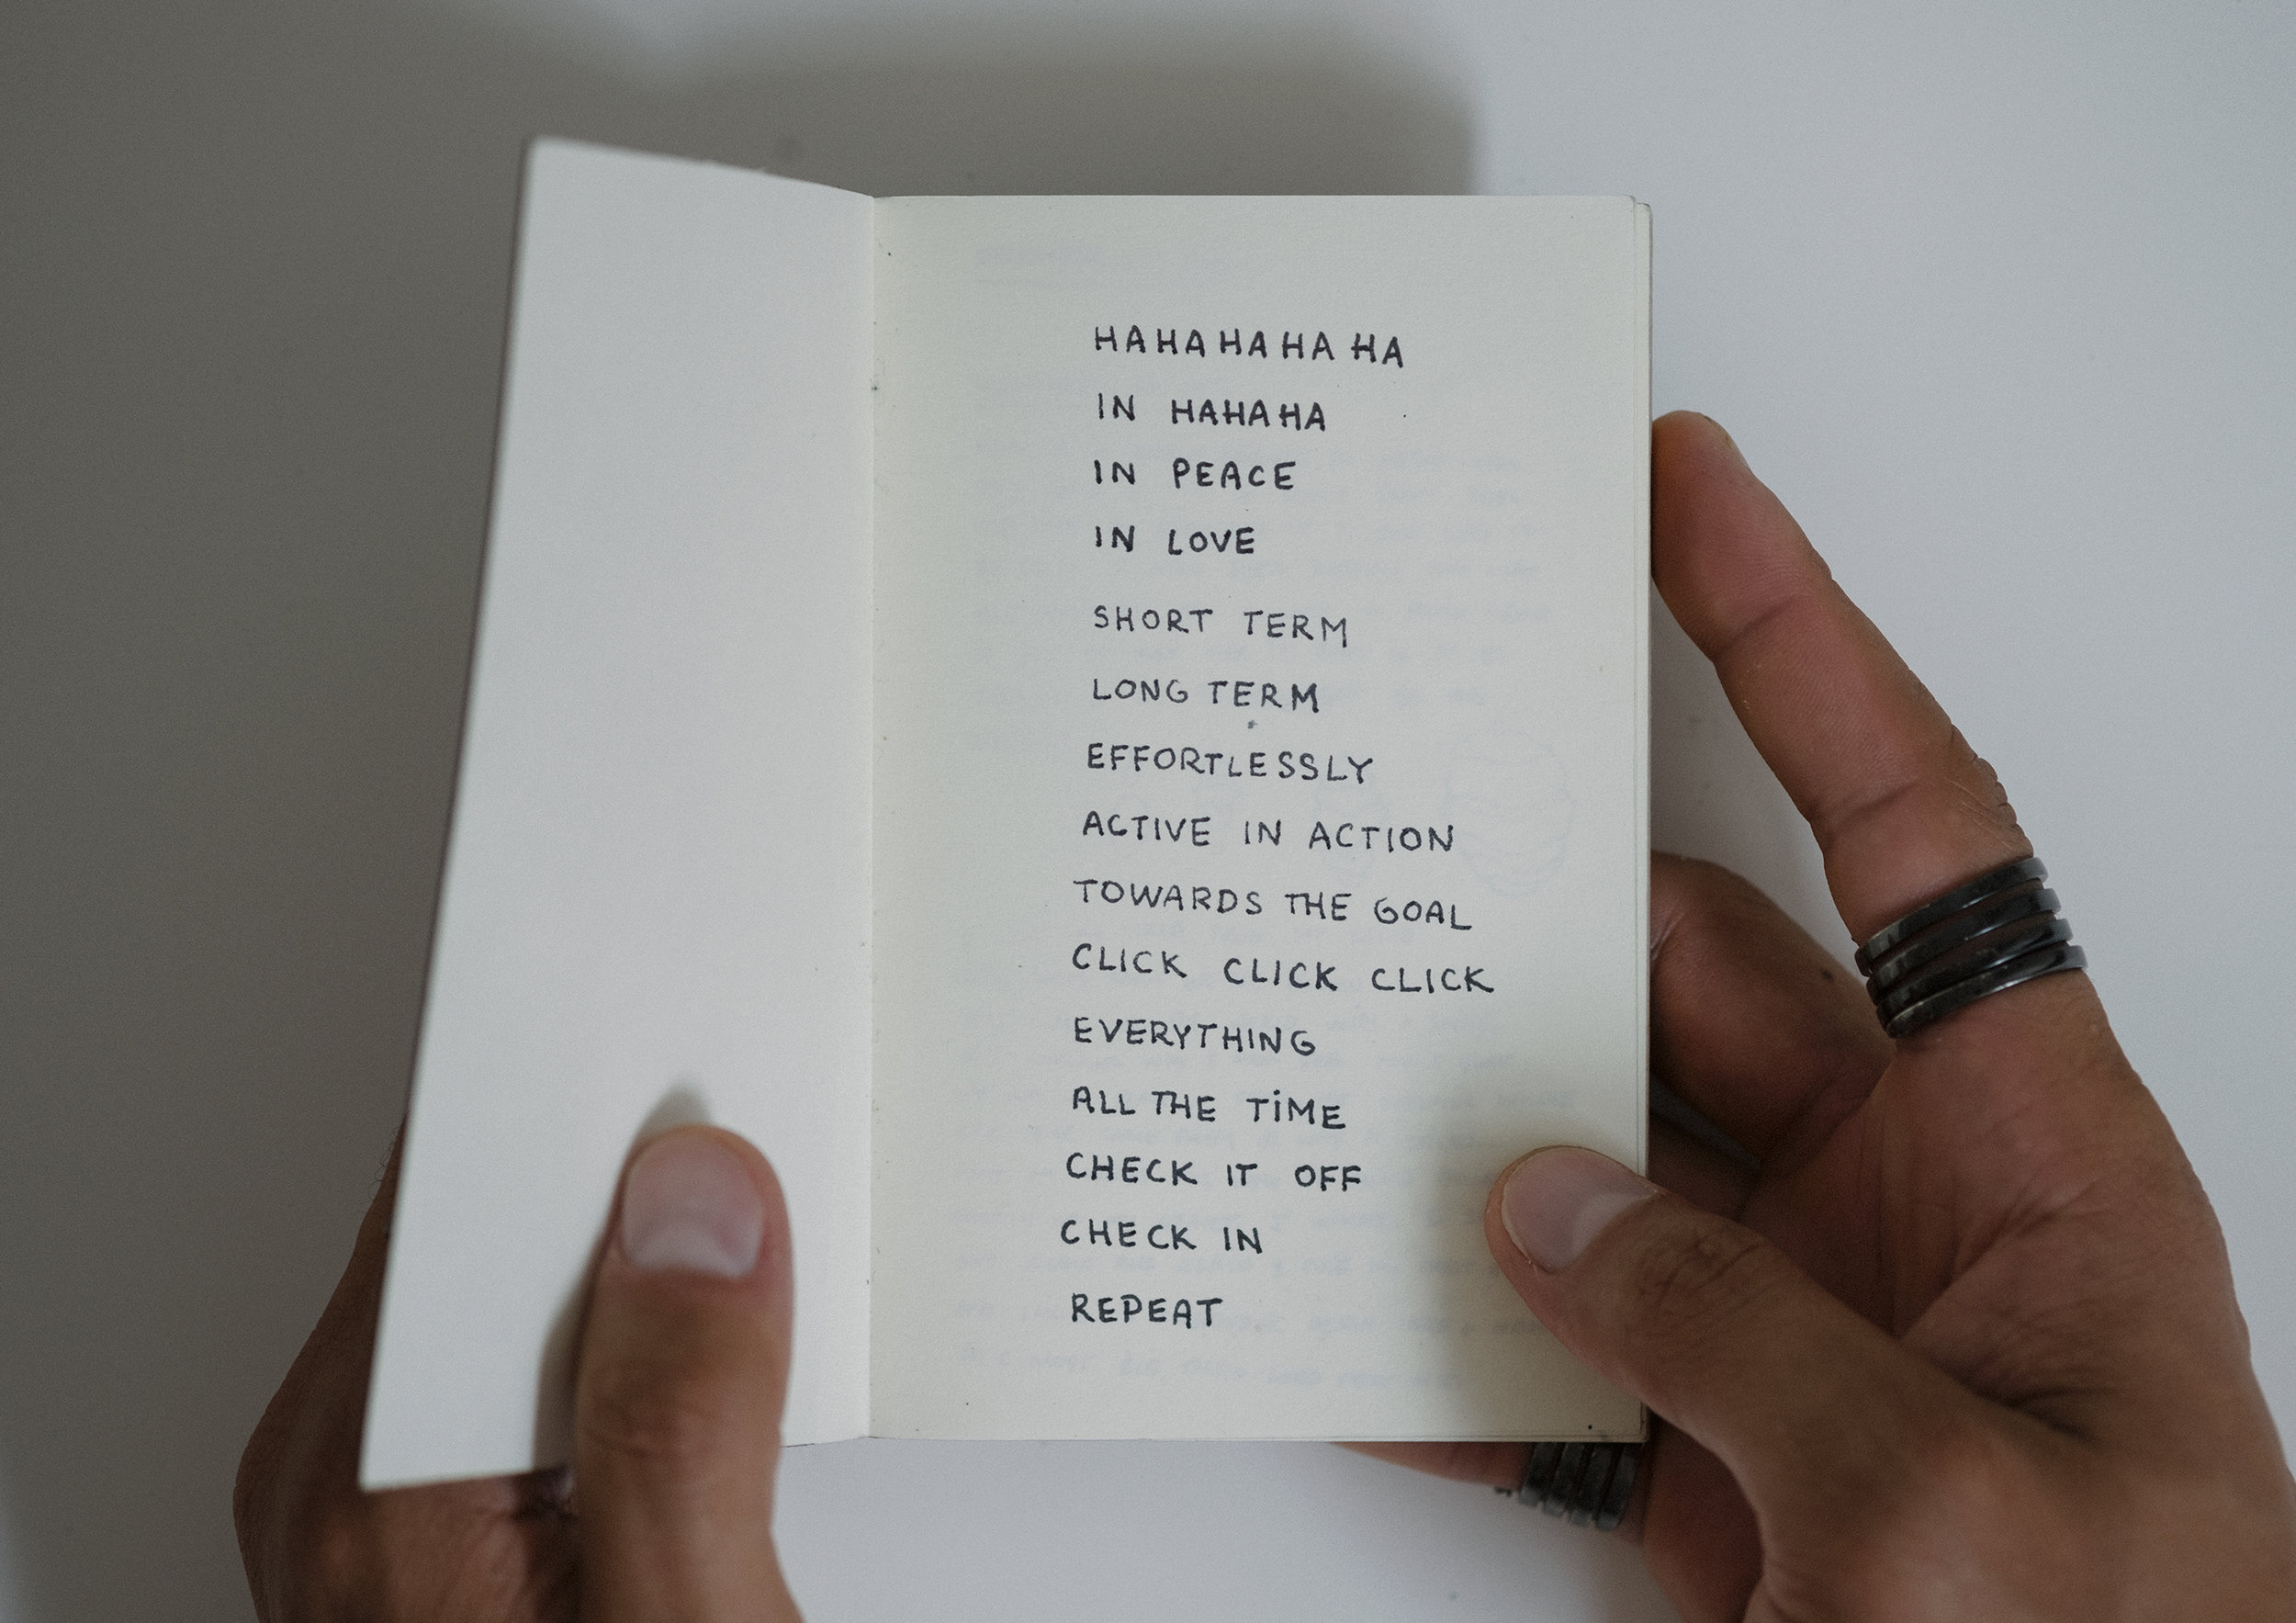 HAHAHAHA HA
IN HAHAHA
IN PEACE
IN LOVE
SHORT TERM
LONG TERM
EFFORTLESSLY
ACTIVE IN ACTION
TOWARDS THE GOAL
CLICK CLICK CLICK
EVERYTHING
ALL THE TIME
CHECK IT OFF
CHECK IN
REPEAT